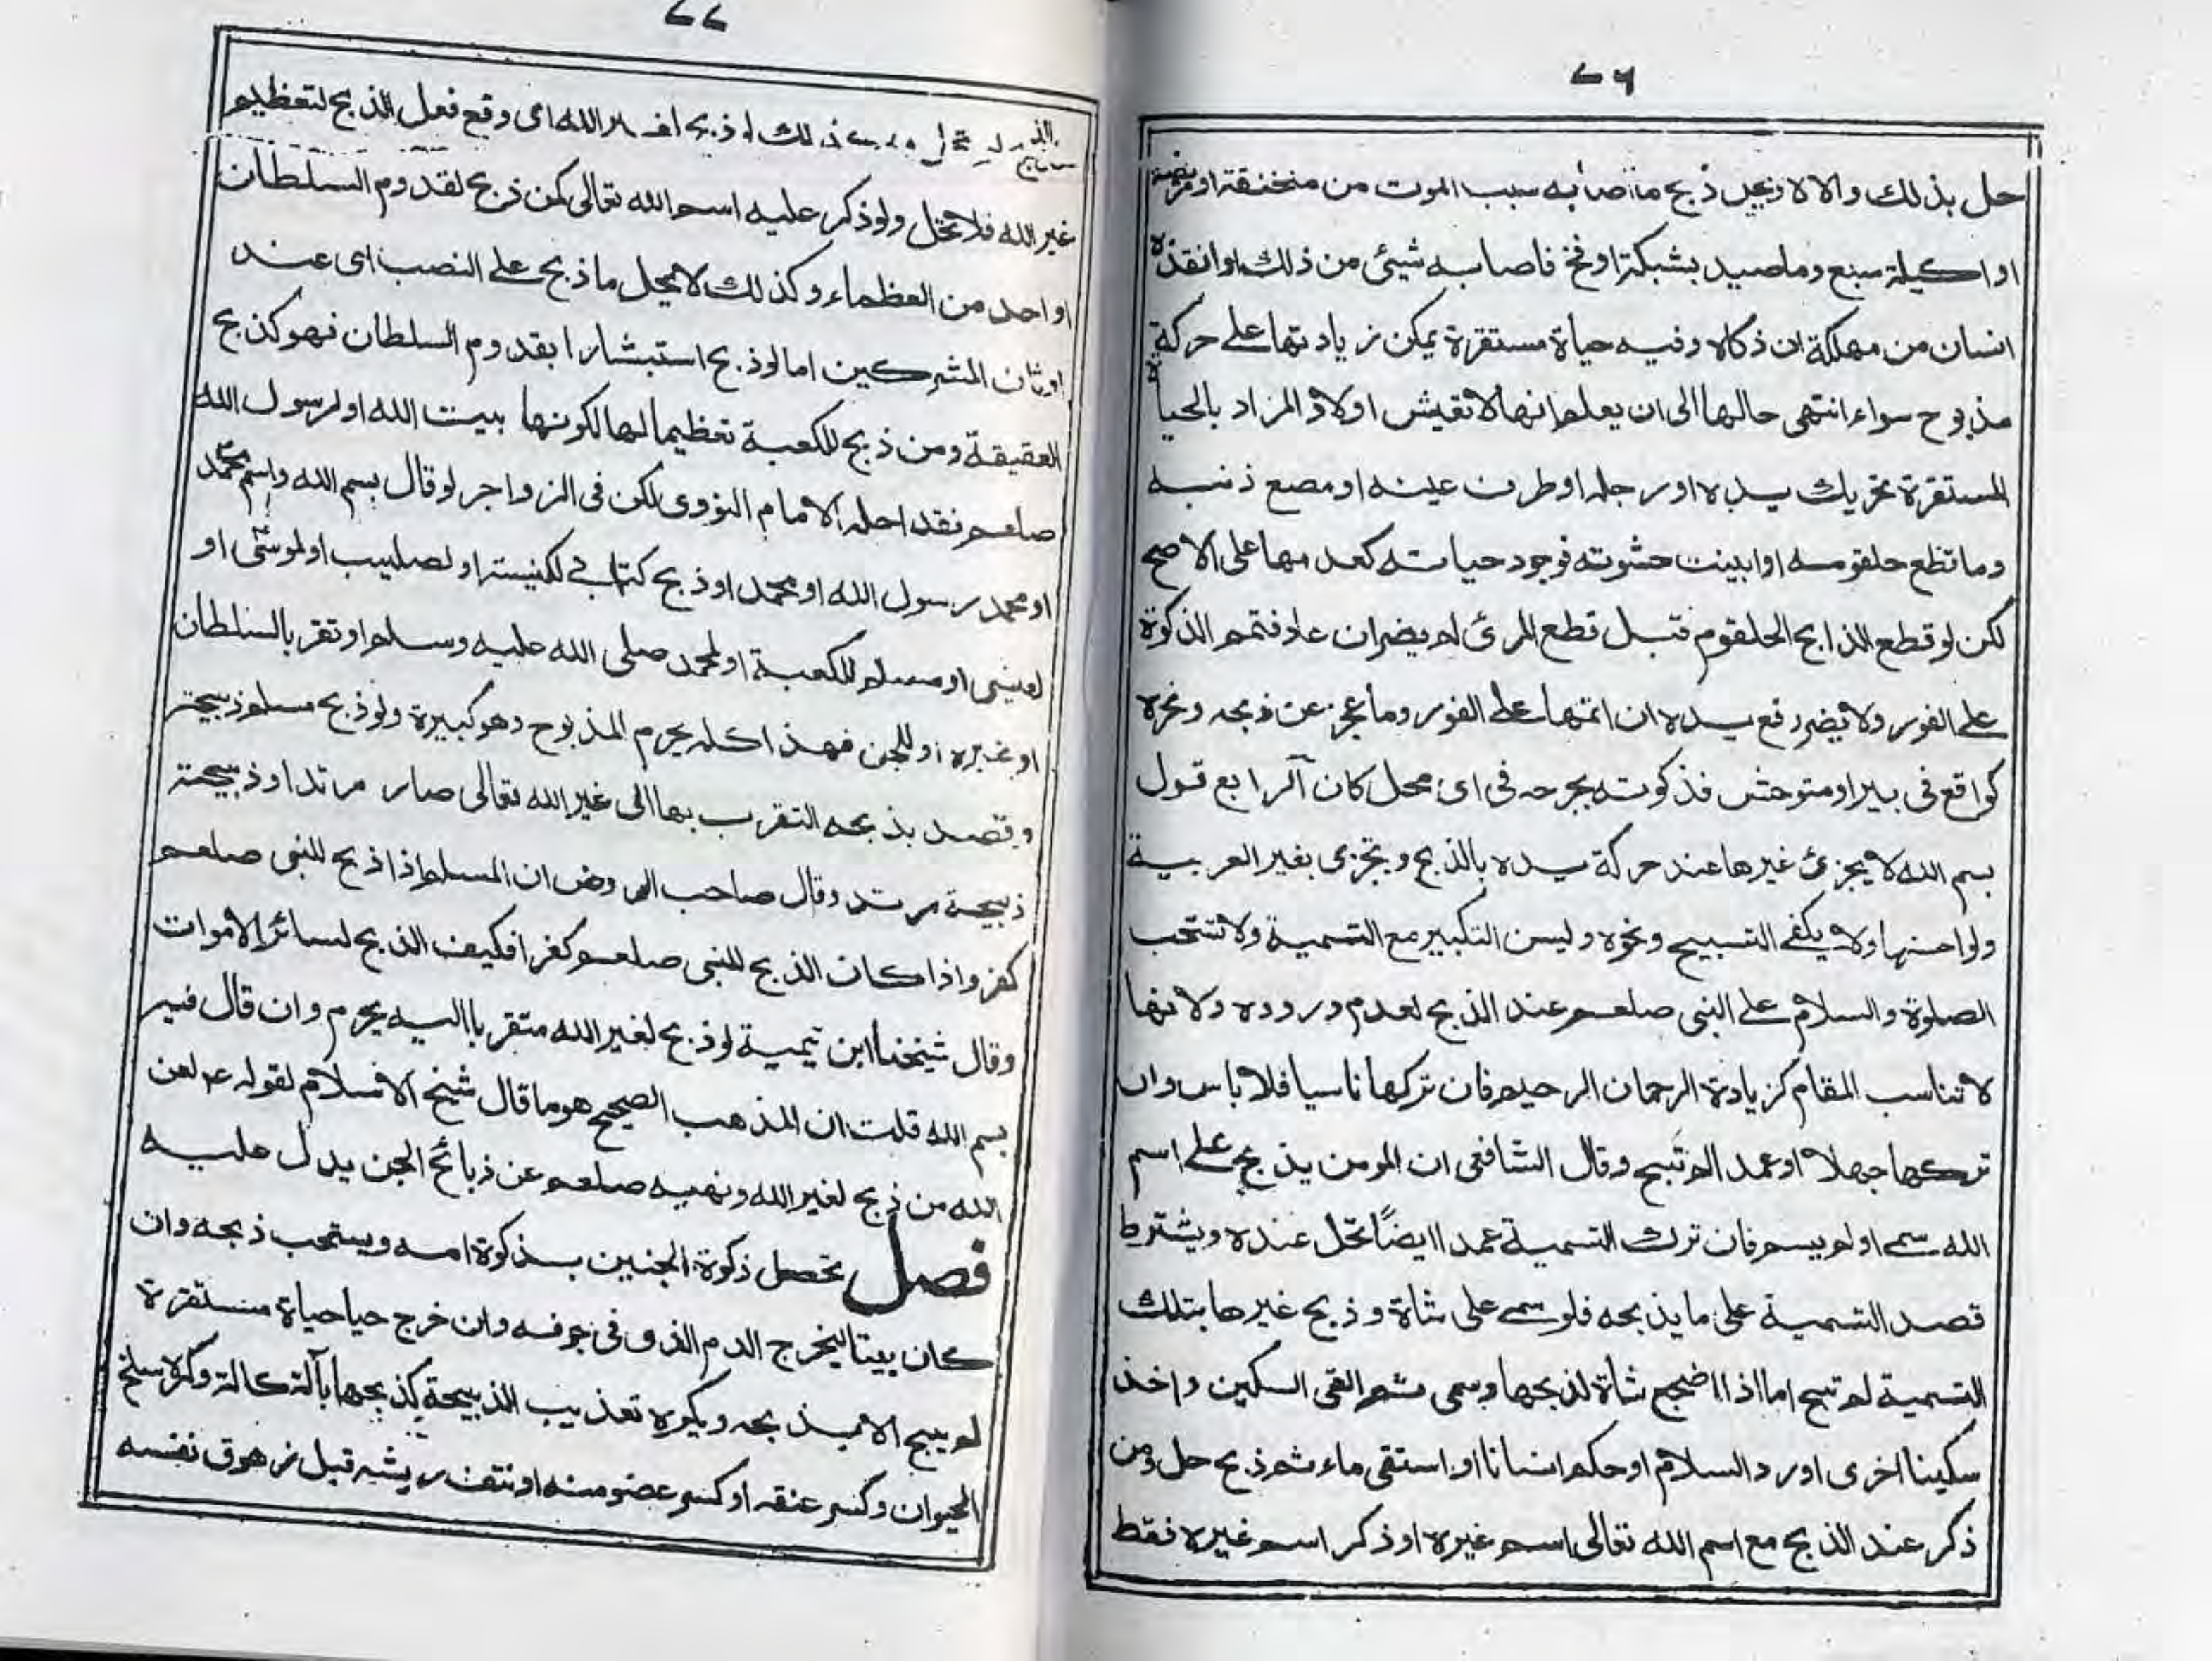 ٧٦
حل بذلك والا لا ويحل ذبح ما اصابه سبب الموت من منخنقة او مريضة
او اكيلة سبع وما صيد بشبكة او فخ فاصابه شيئ من ذلك او انقذه
انسان من مهلكة ان ذكاه وفيه حياة مستقرة يمكن زيادتها على حركة
مذبوح سواء انتهى حالها الى ان يعلم انها لا تعيش او لا و المراد بالحياة
المستقرة تحريك يده او رجله او طرف عينه او مصع ذنبه
وما قطع حلقومه او ابينت حشوته فوجود حياته كعدمها على الاصح
لكن لو قطع الذابح الحلقوم قبل قطع المرئ لم يضر ان عاد فتمم الذكوة
على الفور ولا يضر رفع يده ان اتمها على الفور وما عجز عن ذبحه ونحره
كواقع في بير او متوحش فذكوته بجرحه في اى محل كان آلرابع قول
بسم الله لا يجزئ غيرها عند حركة يده بالذبح ويجزى بغير العربية
ولو احسنها ولا يكفى التسبيح ونحوه وليسن التكبير مع التسمية ولا تستحب
الصلوة والسلام على النبى صلعم عند الذبح لعدم وروده ولانها
لا تناسب المقام كزيادة الرحمان الرحيم فان تركها ناسيا فلا باس وان
تركها جهلا او عمد الم تبح وقال الشافعى ان المومن يذبح على اسم
الله سمى او لم يسم فان ترك التسمية عمد اايضًا تحل عنده ويشترط
قصد التسمية على ما يذبحه فلو سمى على شاة و ذبح غيرها بتلك
التسمية لم تبح اما اذا اضجع شاة لذبحها وسمى ثم القى السكين واخذ
سكينا اخرى او رد السلام او حكم انسانا او استقى ماء ثم ذبح حل ومن
ذكر عند الذبح مع اسم الله تعالى اسم غيره او ذكر اسم غيره فقط
٧٧
ذبح لغير الله اى وقع فعل الذبح لتعظيم
غير الله فلا تحل ولو ذكر عليه اسم الله تعالى كمن ذبح لقدوم السلطان
او احد من العظماء وكذلك لا يحل ما ذبح على النصب اى عند
اوثان المشركين اما لو ذبح استبشارا بقدوم السلطان فهو كذبح
العقيقة ومن ذبح للكعبة تعظيما لها لكونها بيت الله او لرسول الله
صلعم فقد احله الامام النووى لكن فى الزواجر لو قال بسم الله واسم محمّد
او محمد رسول الله او محمد او ذبح كتابي لكنيسة او لصليب او لموسىٰ او
لعيسى او مسلم للكعبة او لمحمد صلى الله عليه وسلم او تقربا لسلطان
او غيره او للجن فهذا كله يحرم المذبوح وهو كبيرة ولو ذبح مسلم ذبيحة
وقصد بذبحه التقرب بها الى غير الله تعالى صار مرتدا و ذبيحته
ذبيحة مرتد وقال صاحب الروض ان المسلم اذا ذبح للنبى صلعم
كفر واذا كان الذبح للنبى صلعم كفرا فكيف الذبح لسائر الاموات
وقال شيخنا ابن تيمية لو ذبح لغير الله متقربا اليه يحرم وان قال فيه
بسم الله قلت ان المذهب الصحيح هو ما قال شيخ الاسلام لقوله عم لعن
الله من ذبح لغير الله ونهيه صلعم عن ذبائح الجن يدل عليه
فصل تحصل ذكوة الجنين بذكوة امه ويستحب ذبحه وان
كان ميتا ليخرج الدم الذى فى جوفه وان خرج حيا حياة مستقرة
لم يبح الا بذبحه ويكره تعذيب الذبيحة كذبحها بآلة كالة وكره سلخ
الحيوان وكسر عنقه او كسر عضو منه او نتف ريشه قبل زهوق نفسه